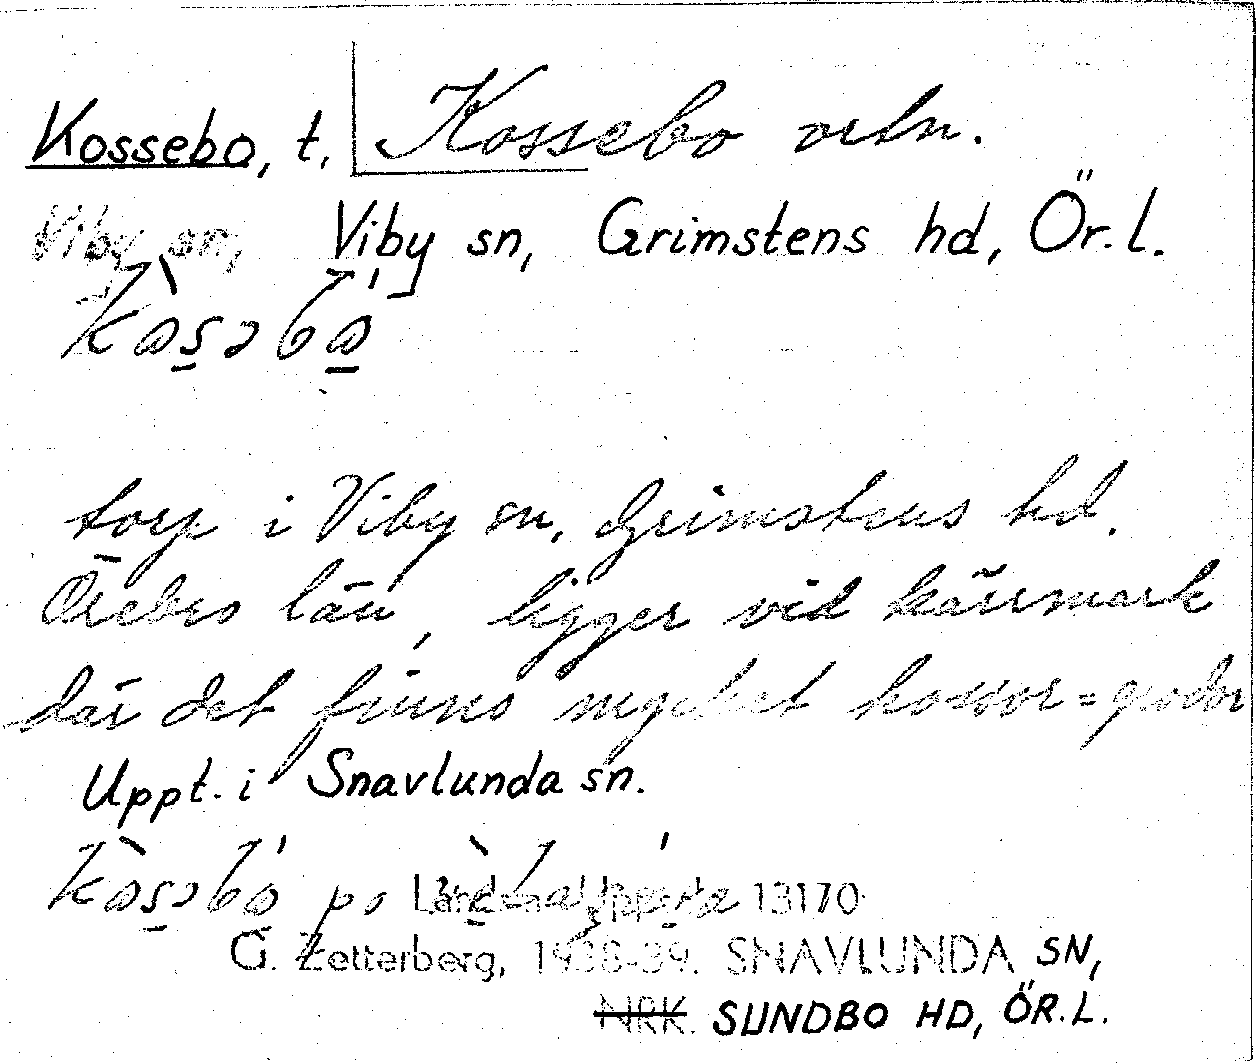 Kossebo, t. Kossebo ortn.
Viby sn, Viby sn, Grimstens hd, Ör.l.
torp i Viby sn, Grimstens hd.
Örebro län, ligger vid kärrmark
där det finns mycket kossor = grodor
Uppt. i Snavlunda sn.
po Landsm. Uppsala 13170
G. Zetterberg, 1938-39. SNAVLUNDA SN,
NRK. SUNDBO HD, ÖR.L.